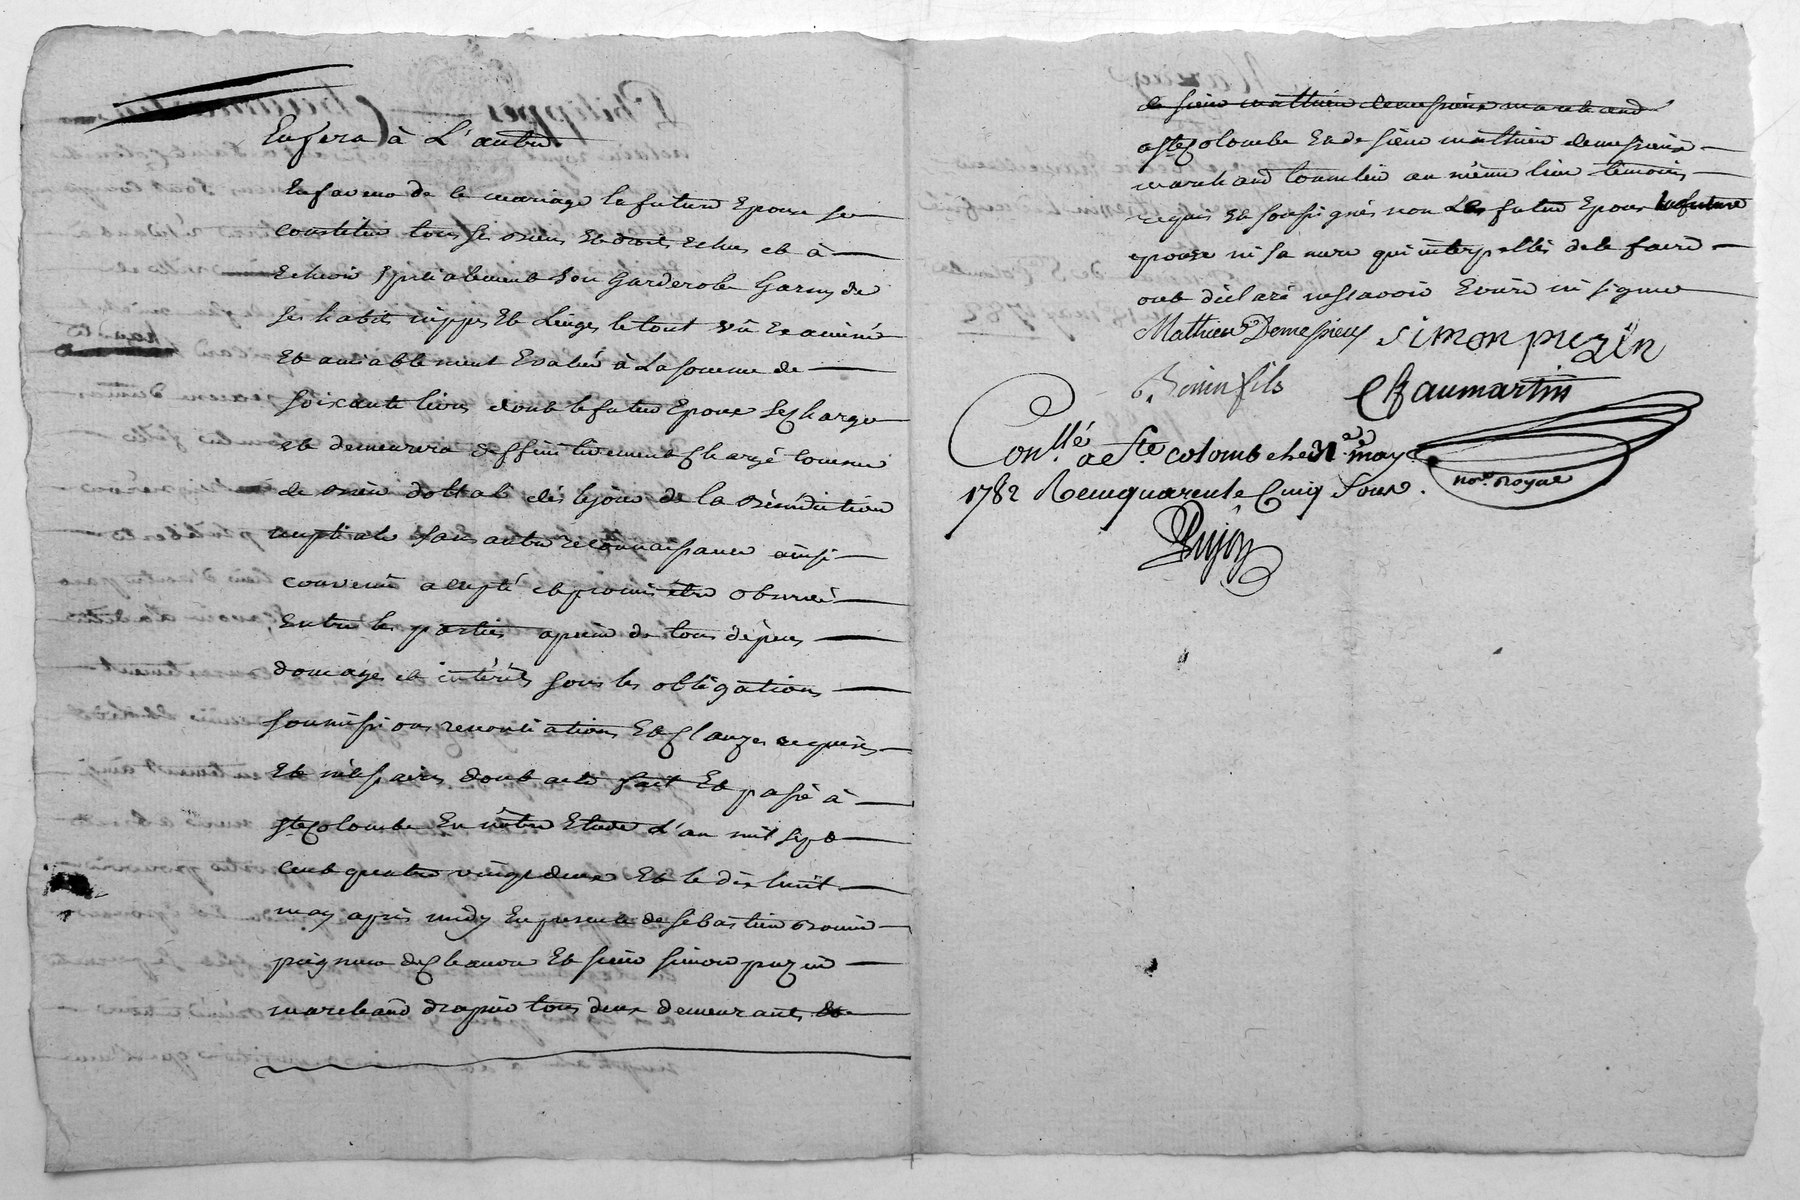 En fera à L'autre
En faveur de ce mariage la future Epouse se
constitue tous ses biens Et droits Echus et à
Echeoir Spécialement Son Garderobe Garny de
ses habits nippes Et Linges le tout vû Examiné
Et amiablement Evalué à La somme de
soixante livres dont le futur Epoux se charge
et demeurera deffinitivement chargé comme
de bien dottal dès le jour de la bénédiction
nuptiale sans autre reconnaissance ainsi
convenû accepté et promis être observé
Entre les parties a peine de tous dépens
domages et intérêts sous les obligations
soumissions renontiations Et Clauzes requises
Et nécessaires dont acte fait Et passé à
Ste Colombe En nôtre Etude L'an mil sept
cent quatre vingt deux Et le dix huit
may après midy En presence de sébastien bonin
peigneur de chanvre Et sieur simon puzin
marchand drapier tous deux demeurants
de sieur mathieu demespieux marchand
a Ste Colombe Et de sieur mathieu demespieux
marchand au même lieu témoins
requis Et soussignés non Le futur Epoux la future
epouse ni sa mere qui interpellés de le faire
ont déclaré ne sçavoir Ecrire ni signer
Mathieu Demespieux simon puzin
Bonin fils Chaumartin
Con.llé a Ste colombe le 31 may
1782 Recu quarente Cinq Sous. no.re royal
Pujoz